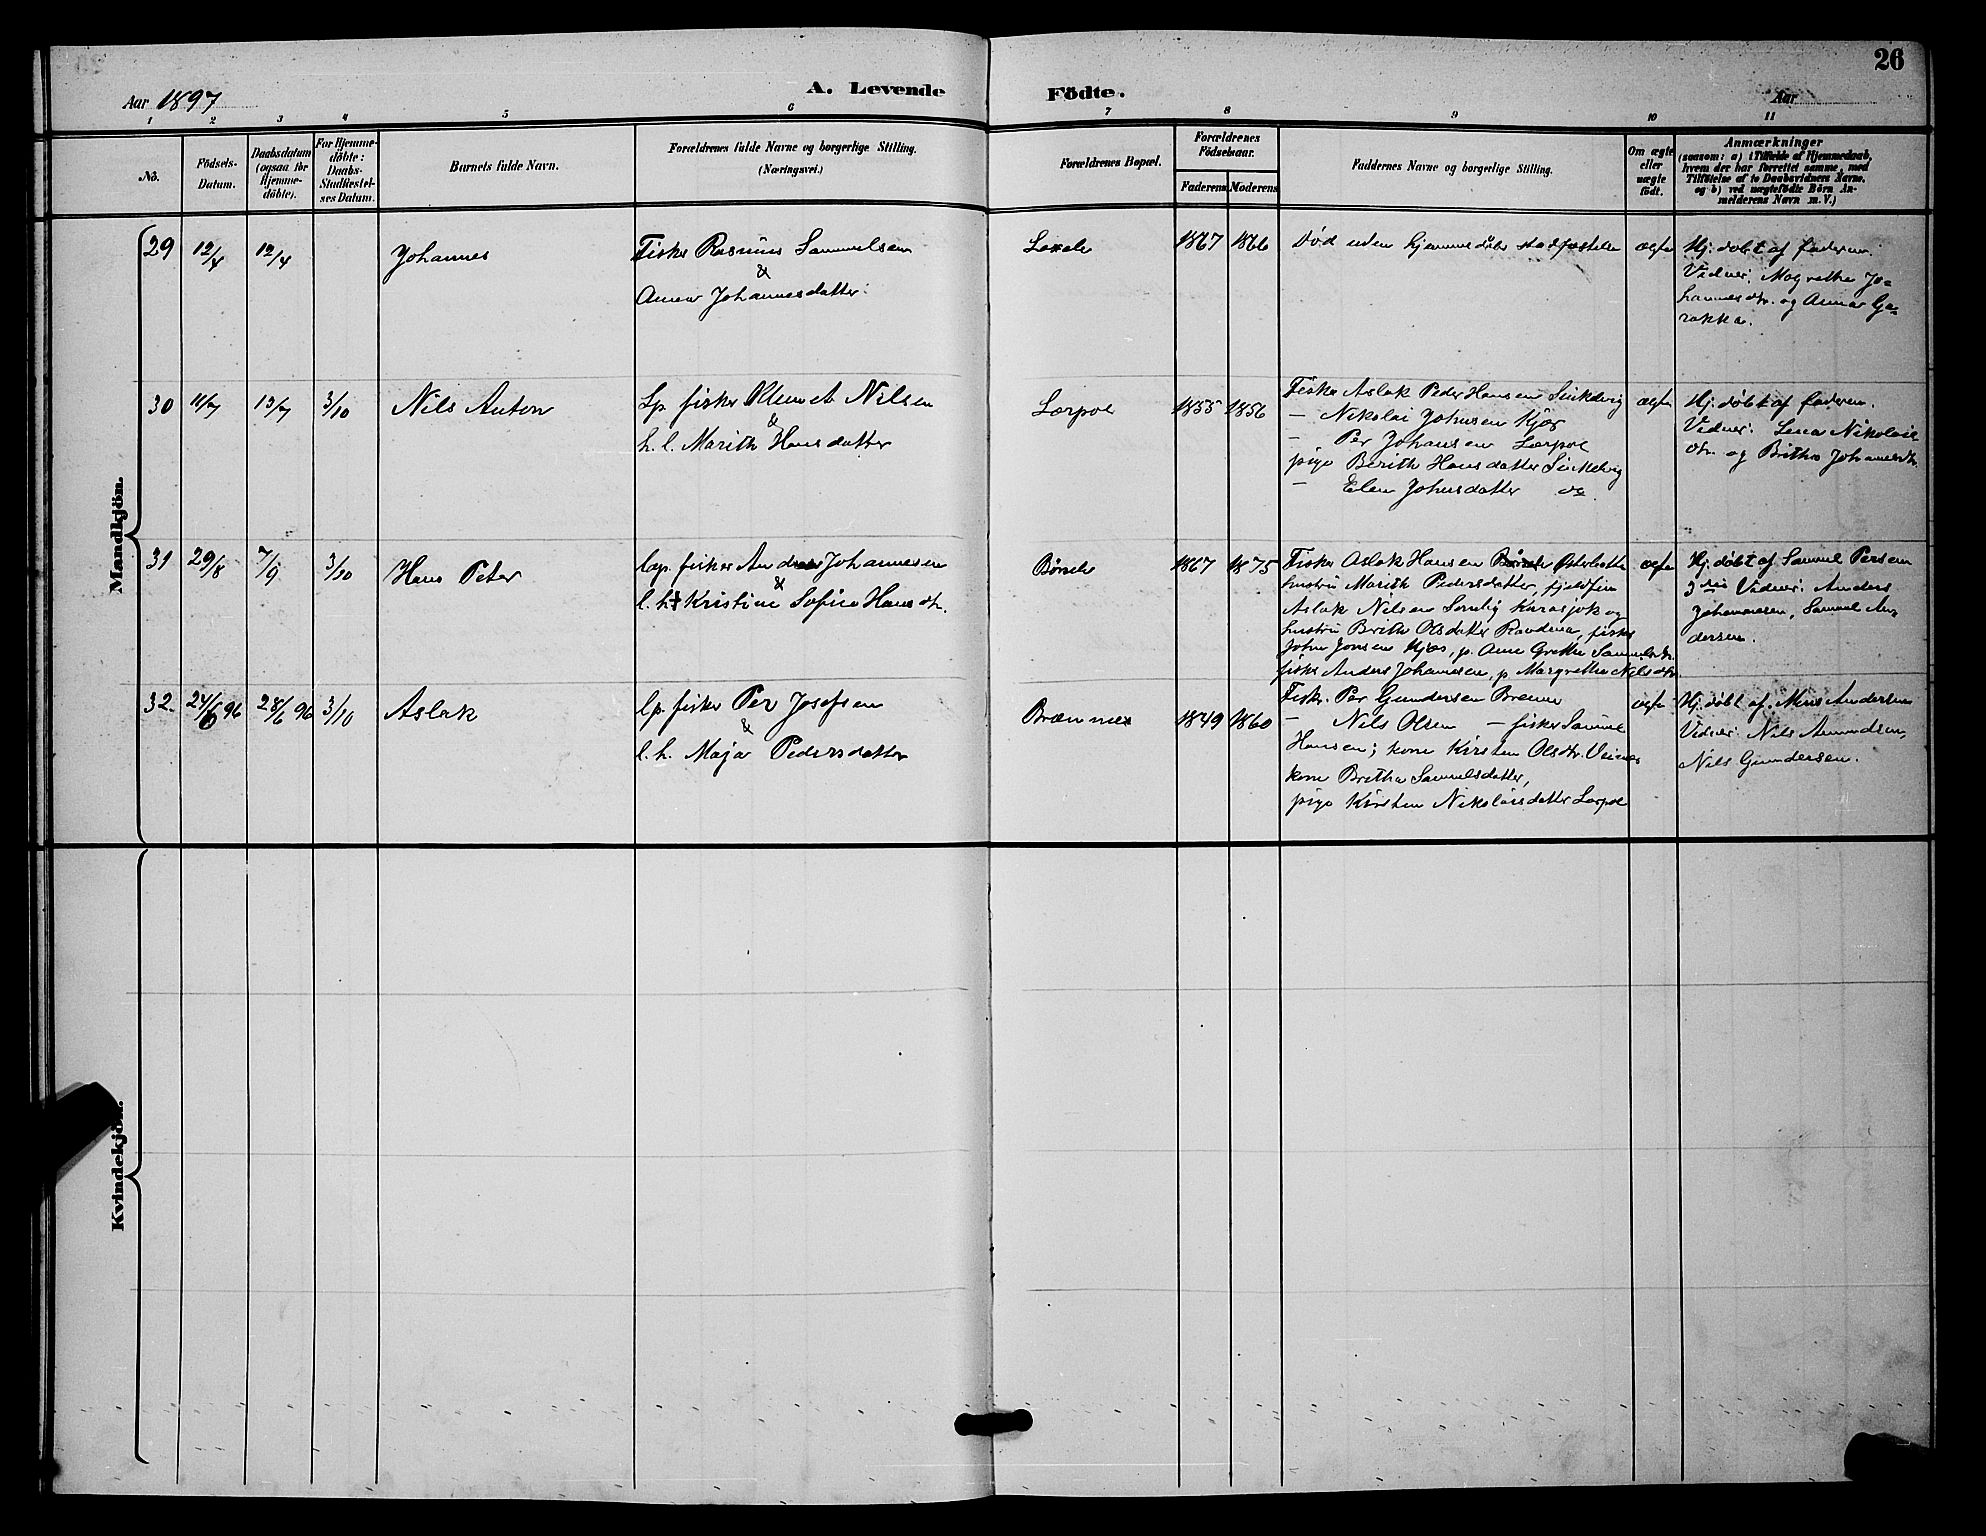 26
Aar 1897
A. Levende Födte.
Aar
1 2 3 4 5 6 7 8 9 10 11
No.
Födsels-Datum.
Daabsdatum (ogsaa for Hjemme-döbte).
For Hjemme-döbte: Daabs-Stadfæstel-ses Datum.
Barnets fulde Navn.
Forældrenes fulde Navne og borgerlige Stilling.
(Næringsvei.)
Forældrenes Bopæl.
Forældrenes Födselsaar.
Faderens Moderens
Faddernes Navne og borgerlige Stilling.
Om ægte eller uægte födt.
Anmærkninger
(saasom: a) i Tilfælde af Hjemmedaab,
hvem der har forrettet samme, med
Tilföielse af to Daabsvidners Navne,
og b) ved uægtefödte Börn An-
melderens Navn m. V.)
Mandkjön.
29 12/4 12/4 Johannes
Fisker Rasmus Samuelsen
&
Anna Johannesdatter
1867 1866
Död uden hjemmedåbs stadfæstelse
ægte
Hj. døbt af faderen.
Vidner: Magrethe Jo-
hannesdtr. og Anna Ga-
rakka.
30 11/7 13/7 3/10 Nils Anton
Lp. fisker Klemet Nilsen
&
h. l. Marith Hansdatter
Lærpol
1855 1856
Fisker Aslak Peder Hansen
— Nikolai Johnsen Kjær
— Per Johansen Lærpol
pige Berith Hansdatter
— Elen Johnsdatter do.
ægte
Hj. døbt af faderen.
Vidner: Lena Nikolai
dtr. og Britha Johannesdtr.
31 29/8 7/9 3/10 Hans Peter
lap. fisker Anders Johannesen
&
l. h. Kristine Sofie Hansdtr.
Børsele
1867 1875
Fisker Aslak Hansen Østerbotn
hustru Marith Pedersdatter, fjeldfin
Aslak Nilsen Karasjok og
hustru Brith Olsdatter Ravdena, fisker
John Jonsen Kjæs, p. Ane Grethe Samuelsdtr.
fisker Anders Johannesen, p Margrethe Nilsdtr.
ægte
Hj. døbt af Samuel Persen
3die Vidner: Anders
Johannesen, Samuel An-
dersen.
32. 24/6 96 28/6 96 3/10 Aslak
lp. fisker Per Josefsen
&
l. h. Maja Pedersdatter
Brænnæs
1849 1860
Fisk. Per Gundersen Brenne
— Nils Olsen — fisker Samuel
Hansen; kone Kirsten Olsdtr. Veines
kone Britha Samuelsdatter,
pige Kirsten Nikolaisdatter Lærpol
ægte
Hj. døbt af Andersen
Vidner: Nils Amundsen,
Nils Gundersen.
Kvindekjön.